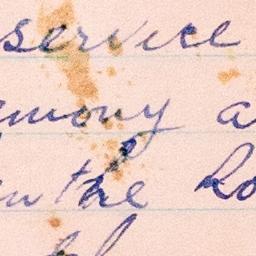 service
emony a
in the Ro